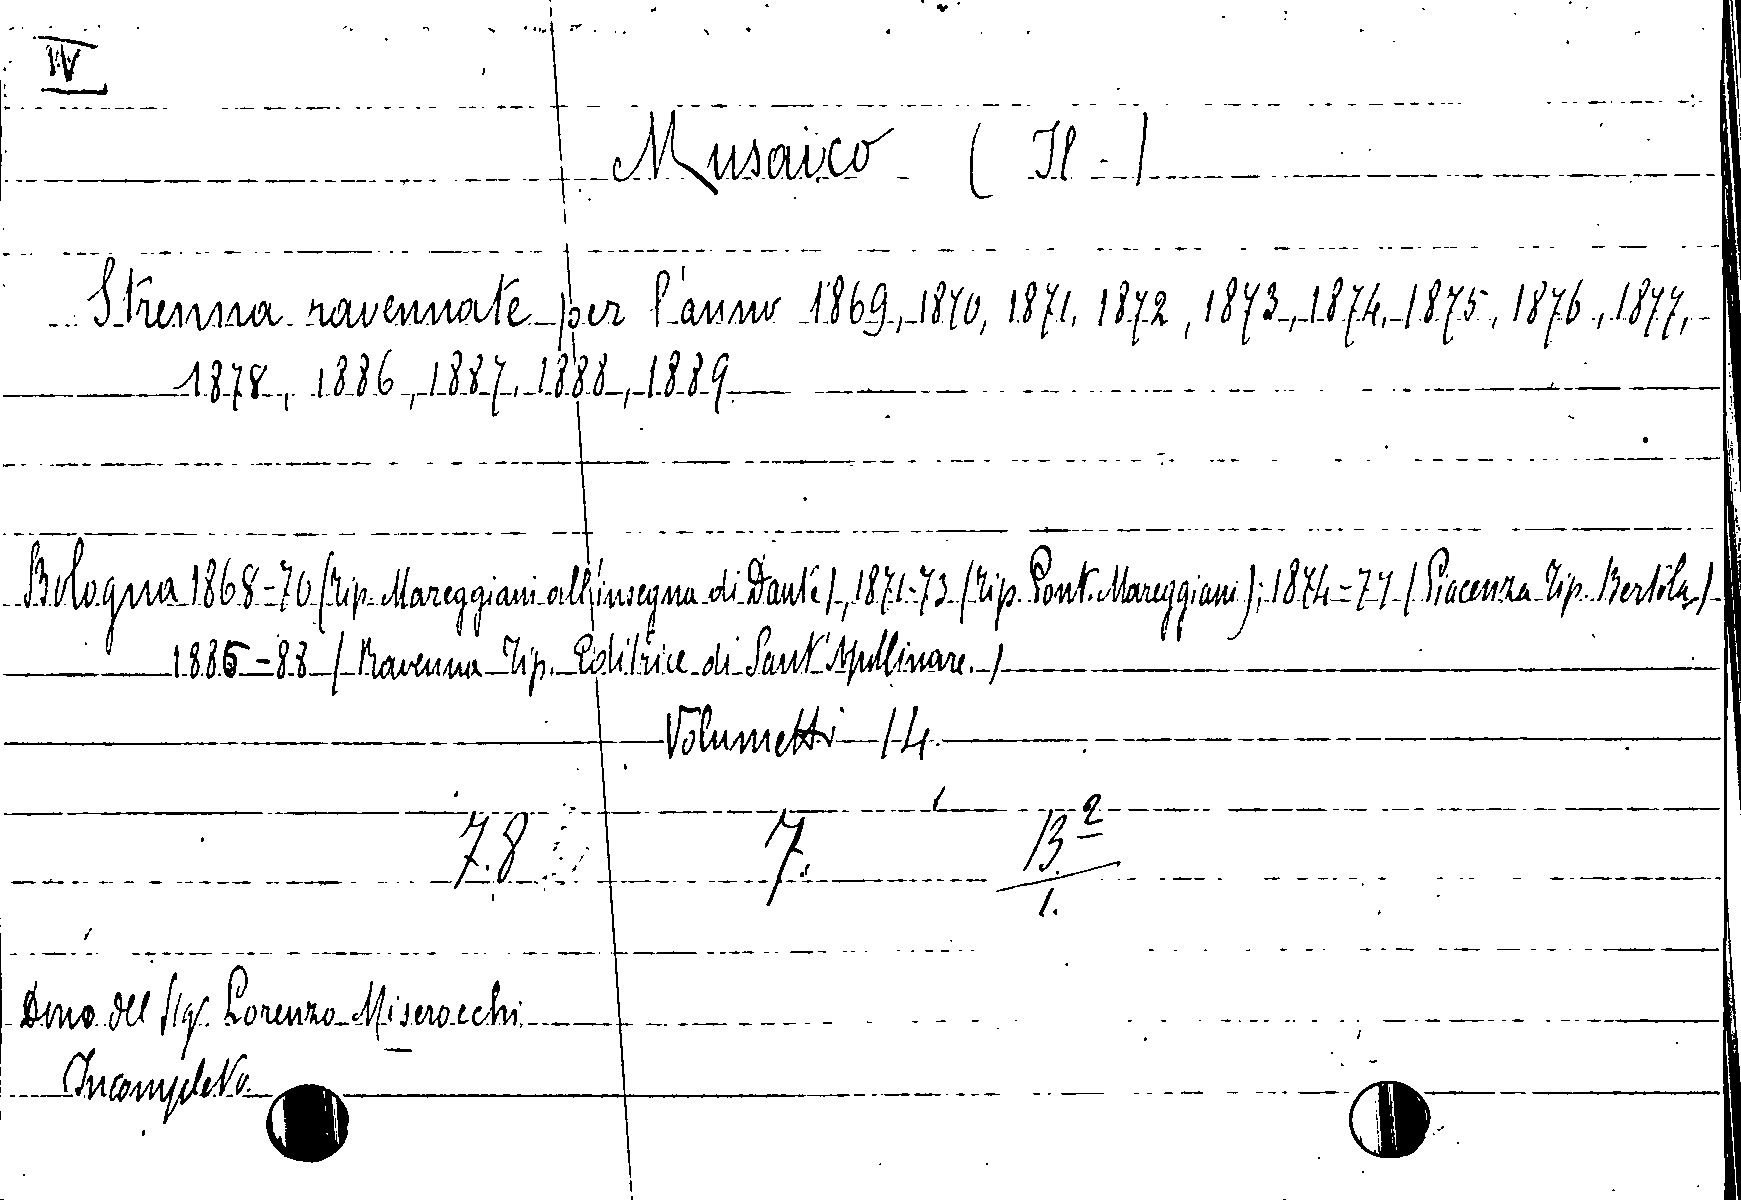 IV
Musaico ( Il - )
Strenna ravennate per l'anno 1869, 1870, 1871, 1872, 1873, 1874, 1875, 1876, 1877,
1878, 1886, 1887, 1888, 1889
Bologna 1868-70 (Tip. Mareggiani all'insegna di Dante), 1871-73 (Tip. Pont. Mareggiani); 1874=77 (Piacenza Tip. Bertola)
1885-88 (Ravenna Tip. Editrice di Sant'Apollinare.)
Volumetti 14.
7.8 7. B 2
1.
Dono del Sig. Lorenzo Miserocchi
Incompleto.